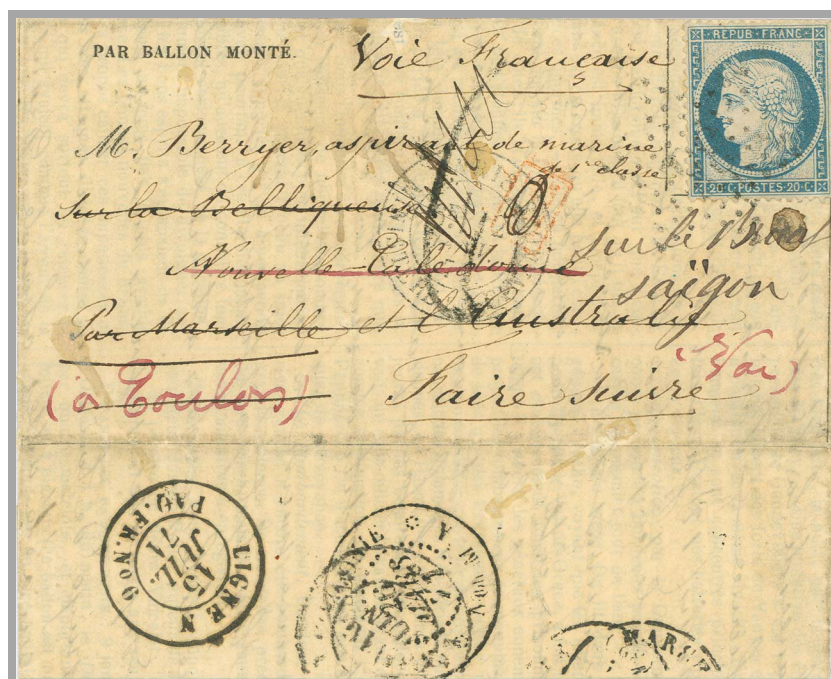 PAR BALLON MONTÉ.
Voie Française
REPUB·FRANC
20·C·POSTES·20·C
M. Berryer, aspirant de marine
de 1e classe
sur la Belliqueuse
sur le
Nouvelle-Calédonie
saïgon
Par Marseille et l'Australie
(à Toulon)
(Var)
Faire suivre
LIGNE N
PAQ. FR. No 9
15
JUIL.
71
MARSE